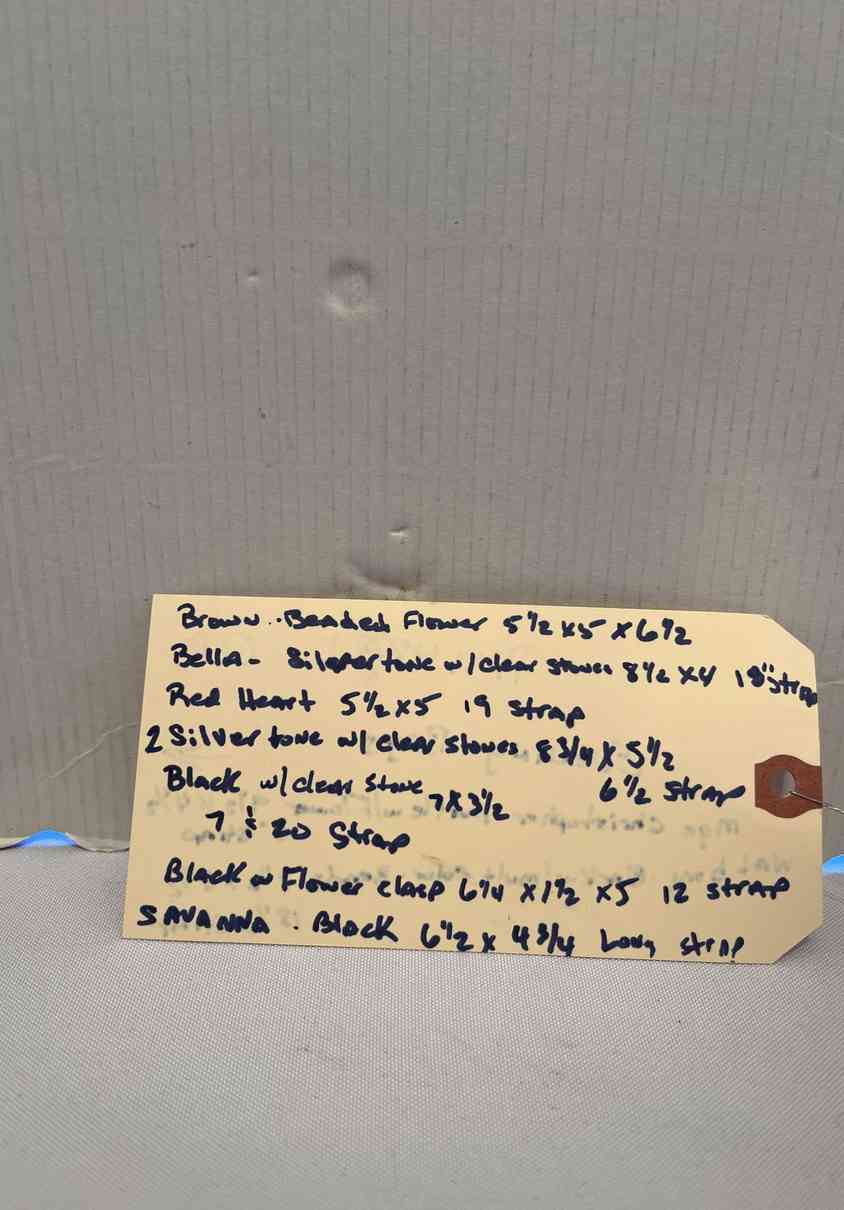 Brown.. Beaded Flower 5 1/2 x 5 x 6 1/2
Bella - Silver tone w/clear stones 8 1/2 x 4 18" strap
Red Heart 5 1/2 x 5 19 strap
2 Silver tone w/ clear stones 8 3/4 x 5 1/2
6 1/2 strap
Black w/clear stone 7 x 3 1/2
7 & 20 strap
Black w Flower clasp 6 1/4 x 1 1/2 x 5 12 strap
SAVANNA . Black 6 1/2 x 4 3/4 Long strap